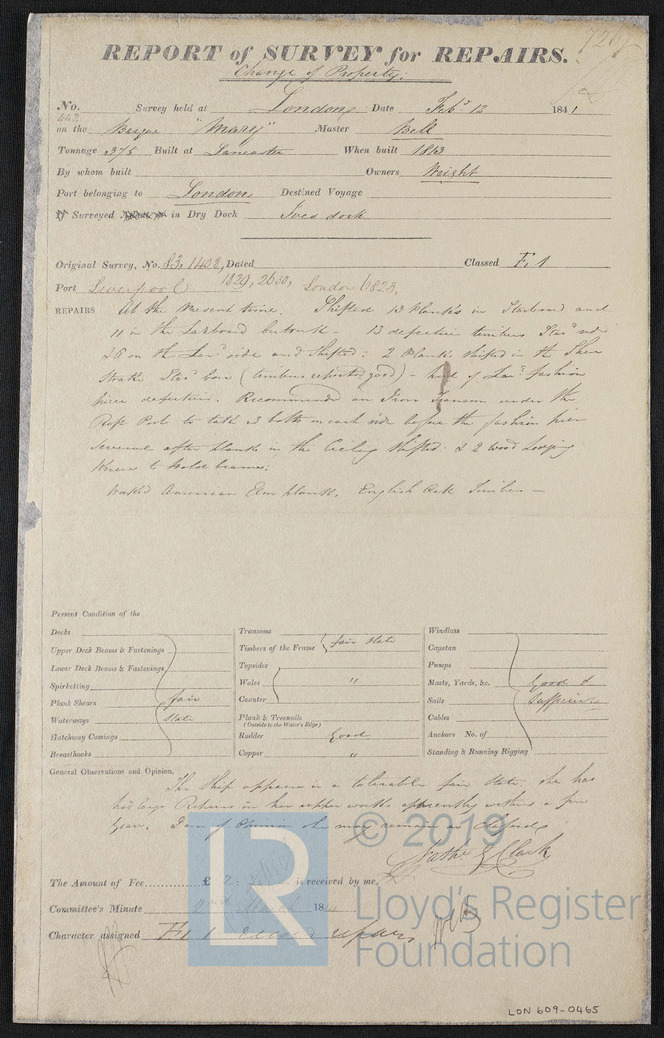 REPORT of SURVEY for REPAIRS.
Change of Property.
No. 442 Survey held at London Date Feby 12 1841
on the Barque "Mary" Master Bell
Tonnage 375 Built at Lancaster When built 1813
By whom built Owners Wright
Port belonging to London Destined Voyage
If Surveyed in Dry Dock Ives dock
Original Survey, No. 83, 1408, Dated Classed F. 1
Port Liverpool 1829, 2650, London 1823,
REPAIRS At the present time. Shifted 13 Planks in Starboard and
11 in the Larboard buttock - 13 defective timbers Starbd side
& 8 on the Larbd side and shifted: 2 Planks shifted in the Sheer
Strake Starbd bow (timbers reported good) - heel of Larbd fashion
piece defective. Recommended an Iron Transom under the
to take 3 bolts on each side before the fashion piece
several after planks in the Ceiling shifted: & 2 wood Lodging
Knees to hold beams;
American Elm plank, English Oak Timbers -
Present Condition of the
Decks
Upper Deck Beams & Fastenings
Lower Deck Beams & Fastenings
Spirketting
Plank Shears fair
Waterways State
Hatchway Comings
Breasthooks
Transoms
Timbers of the Frame fair State
Topsides
Wales "
Counter
Plank & Treenails
(Outside to the Water's Edge)
Rudder Good
Copper "
Windlass
Capstan
Pumps
Masts, Yards, &c. Good &
Sails Sufficient
Cables
Anchors No. of
Standing & Running Rigging
General Observations and Opinion,
The Ship appears in a tolerable fair State, she has
had large Repairs in her upper works apparently within a few
Years. I am of Opinion she may remain as Classed
Nathl G Clark
The Amount of Fee............£ 2 : : is received by me,
Committee's Minute 2nd March 184
Character assigned F. 1
LR
© 2019
Lloyd's Register
Foundation
LON 609-0465